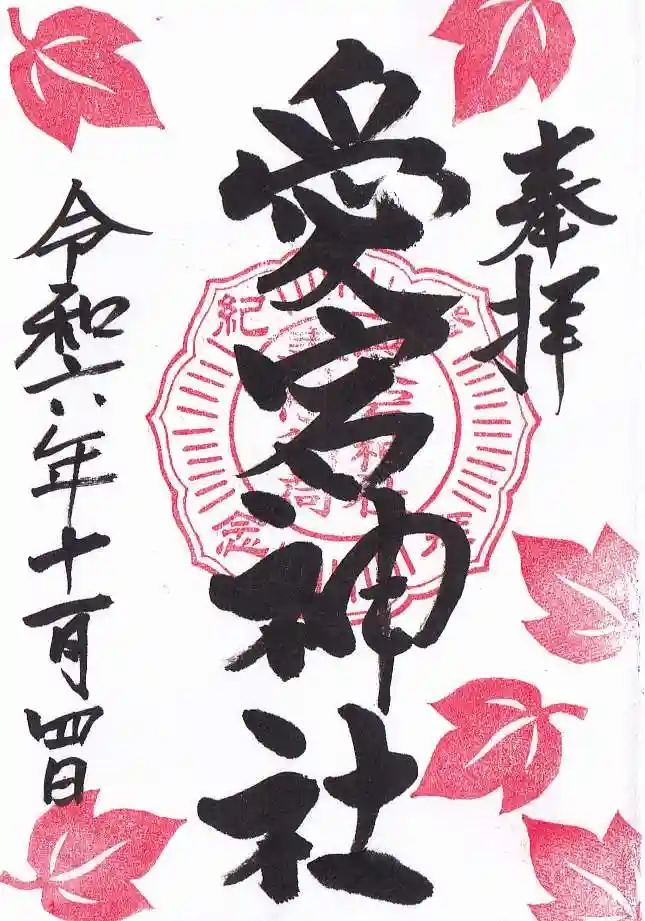 奉拝
愛宕神社
令和六年十一月四日
参拝
紀念